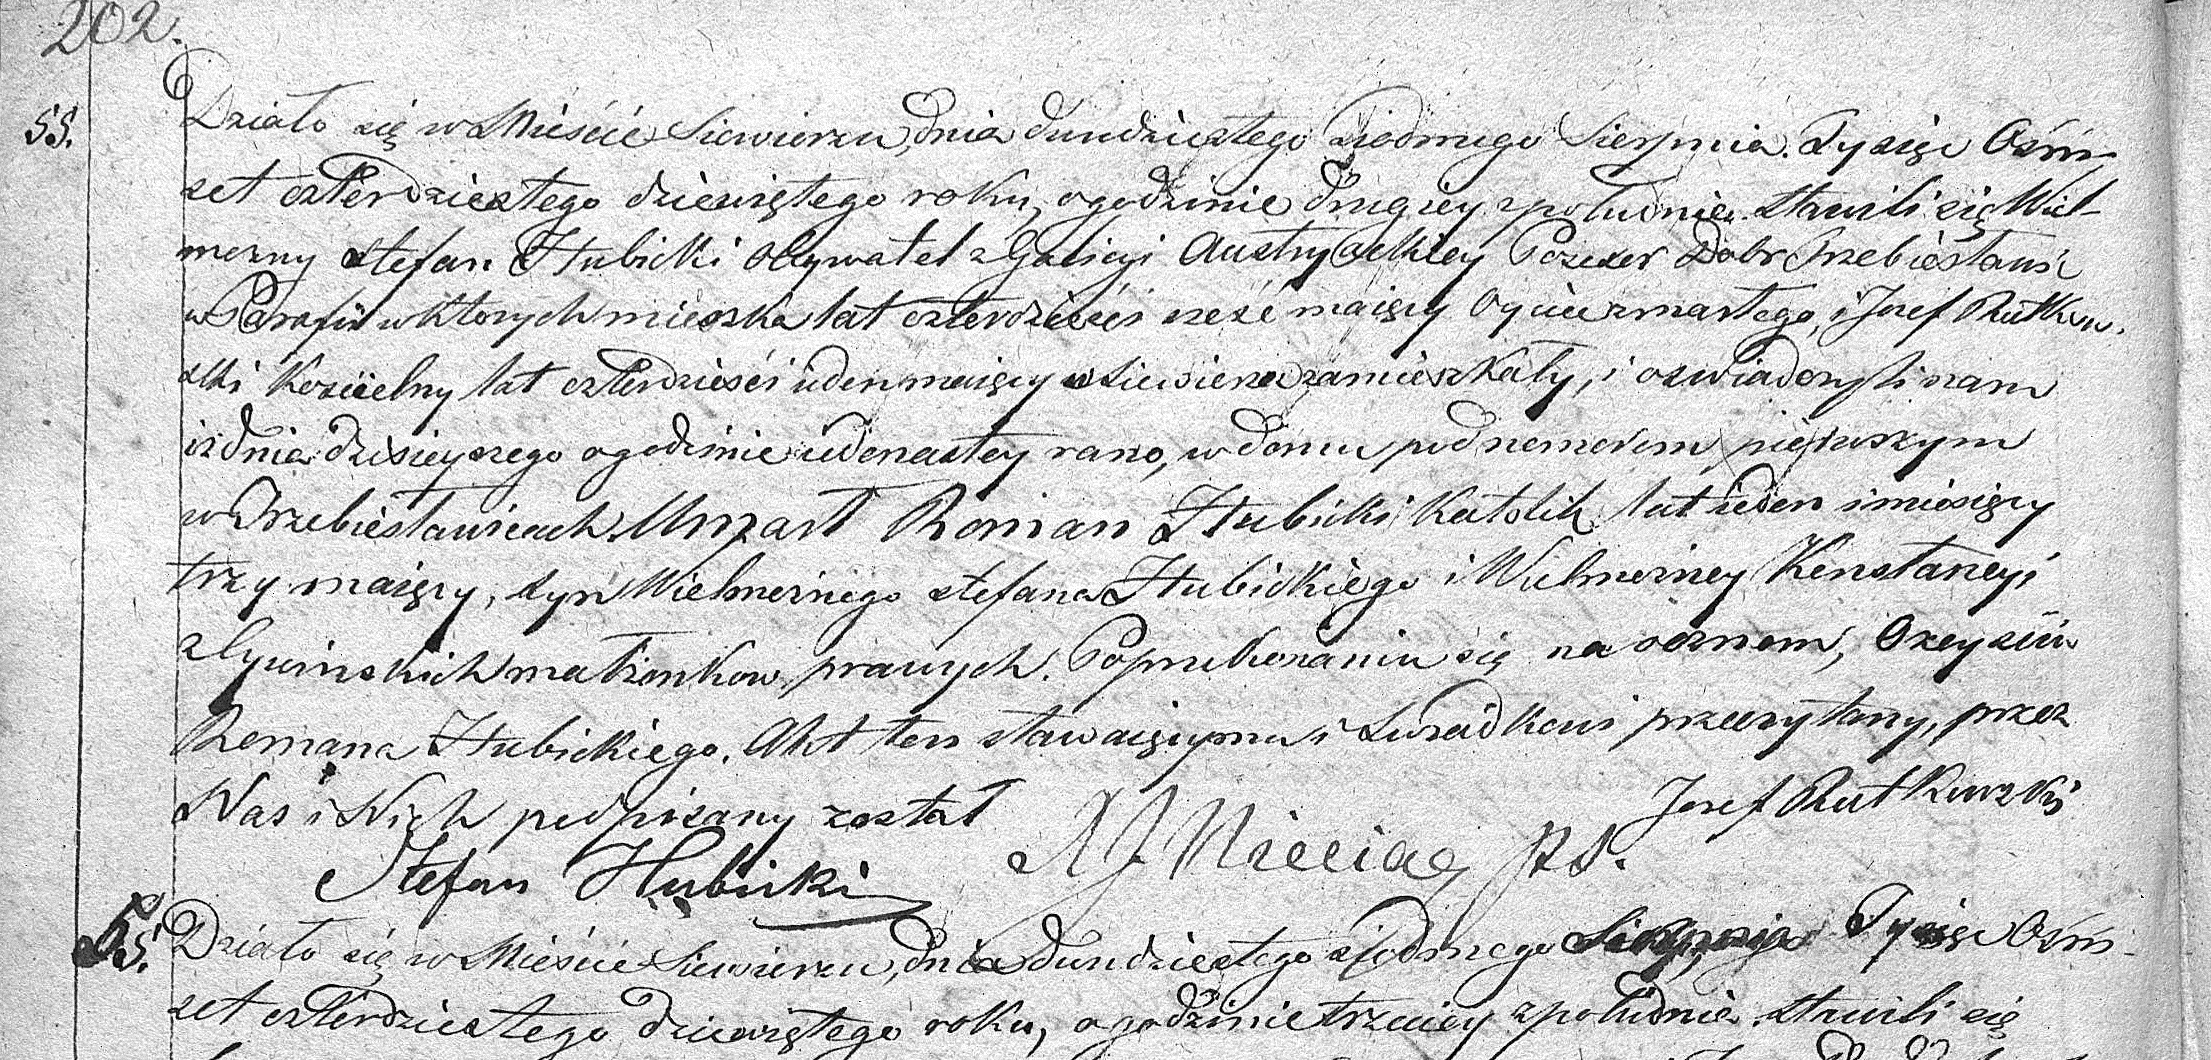 202.
55. Działo się w Mieście Siewierzu, dnia dwudziestego siodmego Sierpnia. Tysiąc Ośm-
set czterdziestego dziewiątego roku, o godzinie drugiey z południa. Stawili się Wiel-
morzny Stefan Hubicki Obywatel z Galicyi Austryackiey Possesor Dobr Trzebiesławic
w Parafii w ktorych mieszka lat czterdzieści sześć maiący Oyciec zmarłego, i Josef Rutkow-
ski Kościelny lat czterdzieści ieden maiący w Siewierzu zamieszkały, i oswiadczyli nam
iż dnia dzisieyszego o godzinie iedenastey rano, w domu pod nomerem pierwszym
w Trzebiesławicach Umarł Roman Hubicki Katolik lat ieden i miesięcy
trzy maiący, syn Wielmoznego Stefana Hubickiego i Wielmozney Konstancyi
z małżonkow prawych. Po przekonaniu się na ocznem, O zeyściu
Romana Hubickiego. Akt ten stawaiącymu i Swiadkowi przeczytany, przez
Nas i Nich podpisany został Josef Rutkowski
Stefan Hubicki
55. Działo się w Mieście Siewierzu, dnia dwudziestego siodmego Sierpnia Tysiąc Ośm-
set czterdziestego dziewiątego roku, o godzinie trzeciey z południa. Stawili się